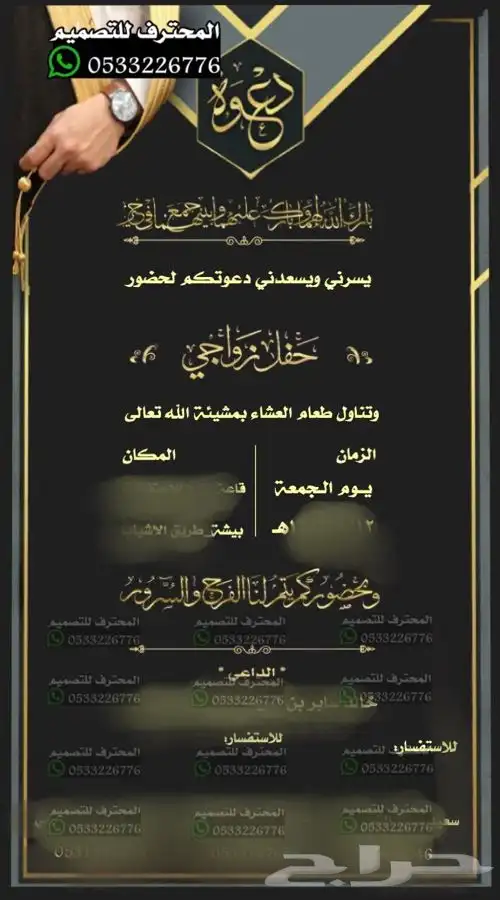 المحترف للتصميم
0533226776
دعوة
بارك الله لهما وبارك عليهما وجمع بينهما في خير
يسرني ويسعدني دعوتكم لحضور
حفل زواجي
وتناول طعام العشاء بمشيئة الله تعالى
الزمان
يوم الجمعة
هـ
المكان
قاعة
بيشة_طريق
وبحضوركم يتم لنا الفرح والسرور
المحترف للتصميم المحترف للتصميم المحترف للتصميم
0533226776 0533226776 0533226776
* الداعي *
المحترف للتصميم المحترف للتصميم المحترف للتصميم
0533226776 0533226776 0533226776
بن
للاستفسار:
للاستفسار:
المحترف للتصميم المحترف للتصميم المحترف للتصميم
0533226776 0533226776 0533226776
المحترف للتصميم المحترف للتصميم المحترف للتصميم
0533226776 0533226776 0533226776
حراج